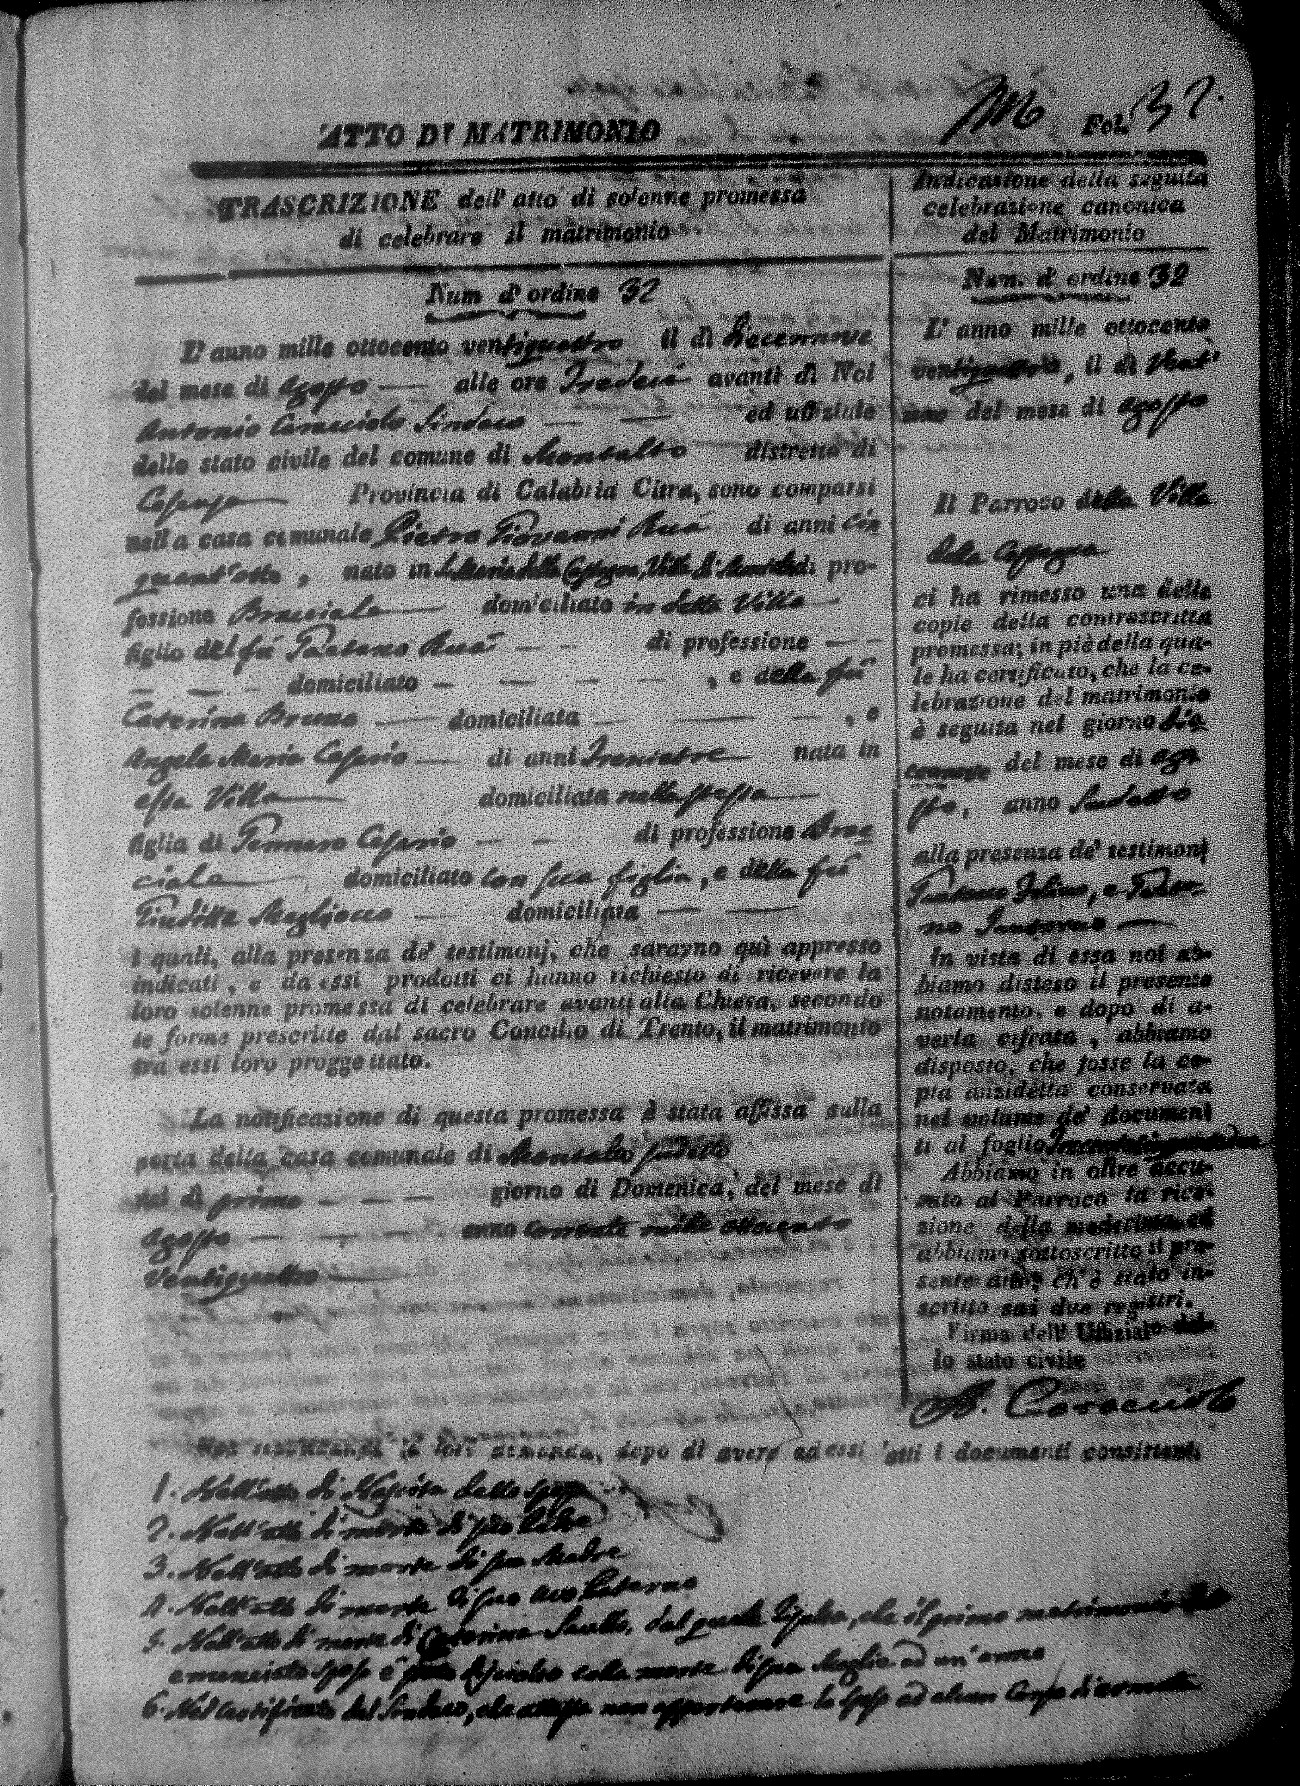 Fol. 37.
ATTO DI MATRIMONIO
TRASCRIZIONE dell' atto di solenne promessa
di celebrare il matrimonio
Num d' ordine 32
L' anno mille ottocento ventiquattro il di Decennove
del mese di Agosto alle ore Tredeci avanti di Noi
Antonio Caracciolo Sindaco ed uffiziale
dello stato civile del comune di Montalto distretto di
Cosenza Provincia di Calabria Citra, sono comparsi
nella casa comunale Pietro Giovanni Ruà di anni cin
quant'otto, nato in pro-
fessione Bracciale domiciliato in detta Villa
figlio del fù Gaetano Ruà di professione
domiciliato , e della fù
Caterina Bruno domiciliata , e
Angela Maria Cesario di anni Trentatre nata in
essa Villa domiciliata nella stessa
figlia di Gennaro Cesario di professione Brac
ciale domiciliato con sua figlia, e della fù
Giuditta Magliocco domiciliata
i quali, alla presenza de' testimonj, che saranno quì appresso
indicati, e da essi prodotti ci hanno richiesto di ricevere la
loro solenne promessa di celebrare avanti alla Chiesa, secondo
le forme prescritte dal sacro Concilio di Trento, il matrimonio
tra essi loro proggettato.
La notificazione di questa promessa è stata affissa sulla
porta della casa comunale di Montalto sudetto
nel dì primo giorno di Domenica, del mese di
Agosto anno corrente mille ottocento
Ventiquattro
Indicazione della seguita
celebrazione canonica
del Matrimonio
Num. d' ordine 32
L' anno mille ottocento
ventiquattro, il di Vent'
uno del mese di Agosto
Il Parroco della Villa
della
ci ha rimesso una delle
copie della controscritta
promessa; in piè della qua-
le ha certificato, che la ce-
lebrazione del matrimonio
è seguita nel giorno die
cennove del mese di ago
sto, anno sudetto
alla presenza de' testimonj
Gaetano
In vista di essa noi ab-
biamo disteso il presente
notamento, e dopo di a-
verla cifrata, abbiamo
disposto, che fosse la co-
pia anzidetta conservata
nel volume de' document
ti al foglio
Abbiamo in oltre accu-
sato al Parroco la rice-
zione della medesima ed
abbiamo sottoscritto il pre-
sente atto, ch' è stato in-
scritto sui due registri.
Firma dell' Uffiziale del-
lo stato civile
A. Caracciolo
Noi secondando la loro domanda, dopo di avere ad essi letti i documenti consistenti
1. Nell'atto di Nascita dello sposo
2. Nell'atto di morte di suo Padre
3. Nell'atto di morte di sua Madre
4. Nell'atto di morte di suo avo Paterno
5. Nell'atto di morte di Caterina dal quale si che il primo matrimonio
enunciato sposo è colla morte di sua Moglie ad
6. Nel Certificato del Sindaco, che attesta non appartenere lo sposo ad alcun Corpo di armata